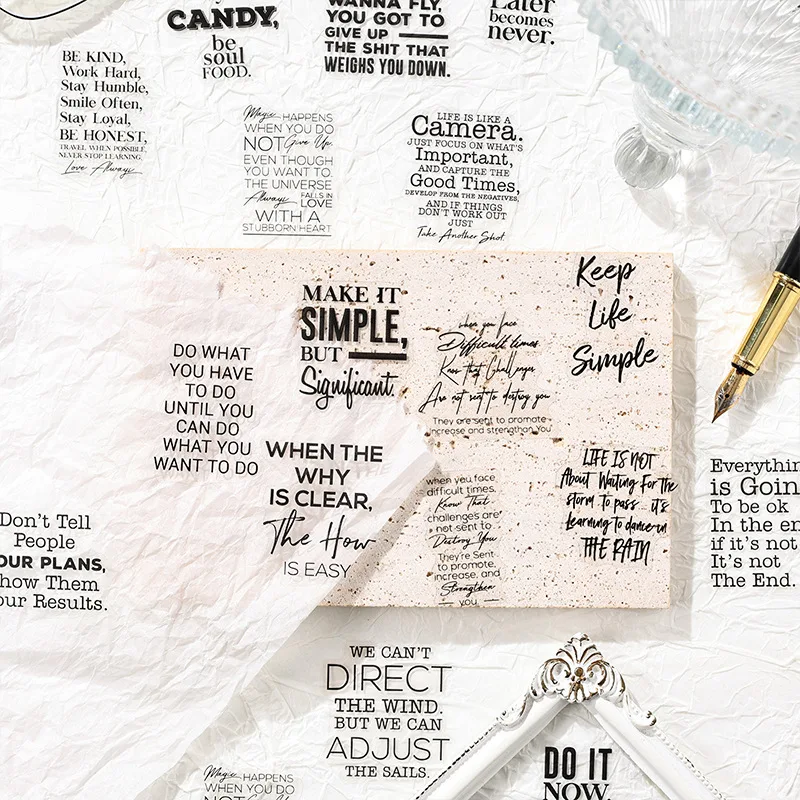 CANDY,
be
soul
FOOD.
WANNA FLY,
YOU GOT TO
GIVE UP
THE SHIT THAT
WEIGHS YOU DOWN.
Later
becomes
never.
BE KIND,
Work Hard,
Stay Humble,
Smile Often,
Stay Loyal,
BE HONEST,
TRAVEL WHEN POSSIBLE,
NEVER STOP LEARNING,
Love Always
Magic HAPPENS
WHEN YOU DO
NOT Give Up,
EVEN THOUGH
YOU WANT TO.
THE UNIVERSE
Always FALLS IN
LOVE
WITH A
STUBBORN HEART
LIFE IS LIKE A
Camera.
JUST FOCUS ON WHAT'S
Important,
AND CAPTURE THE
Good Times,
DEVELOP FROM THE NEGATIVES,
AND IF THINGS
DON'T WORK OUT
JUST
Take Another Shot.
MAKE IT
SIMPLE,
BUT
Significant.
Keep
Life
Simple
DO WHAT
YOU HAVE
TO DO
UNTIL YOU
CAN DO
WHAT YOU
WANT TO DO
when you face
Difficult times
Know that Challenges
Are not sent to destroy you
They are sent to promote
increase and strengthan You
WHEN THE
WHY
IS CLEAR,
The How
IS EASY
when you face
difficult times,
Know That
challenges are
not sent to
Destroy You
They're Sent
to promote,
increase, and
Strengthen
you
LIFE IS NOT
About Waiting For the
storm to pass... it's
learning to dance in
THE RAIN
Everythin
is Goin
To be ok
In the en
if it's not
It's not
The End.
Don't Tell
People
OUR PLANS,
how Them
our Results.
WE CAN'T
DIRECT
THE WIND.
BUT WE CAN
ADJUST
THE SAILS.
Magic HAPPENS
WHEN YOU DO
NOT Give Up
DO IT
NOW.